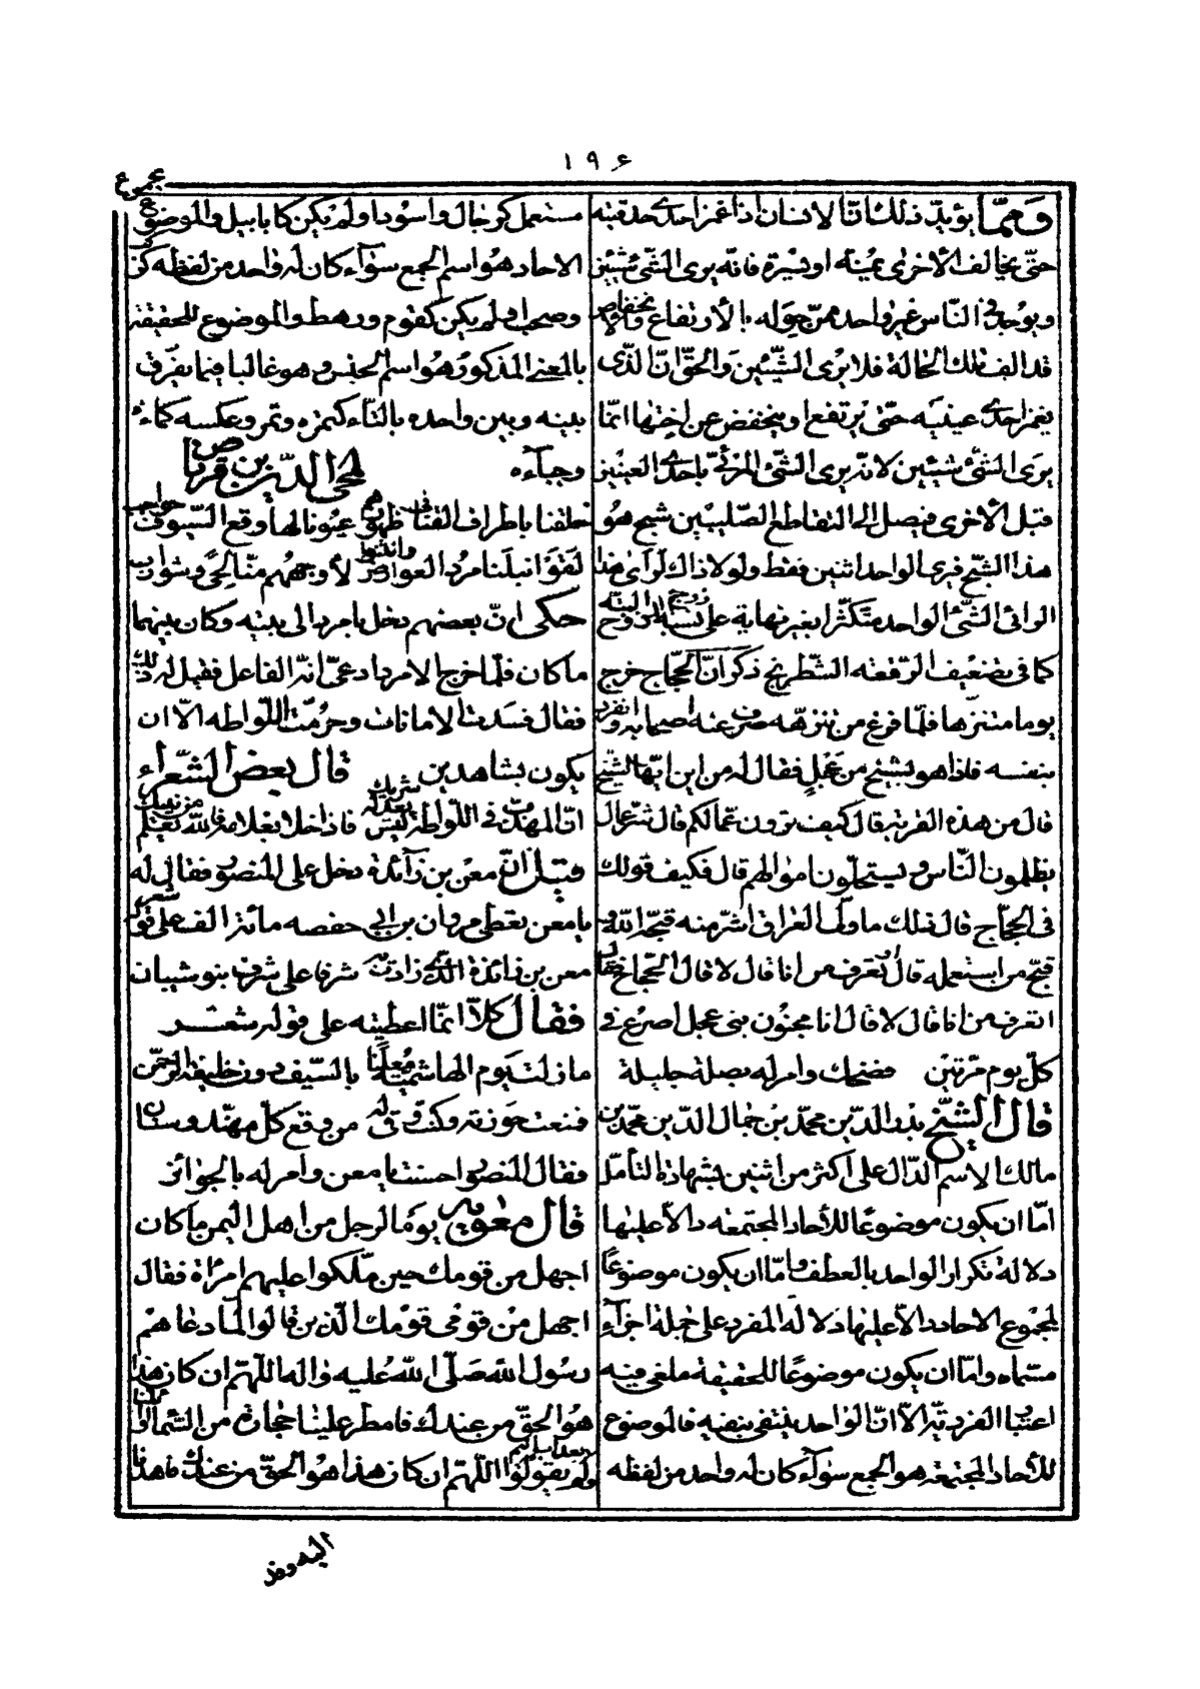 ١٩۶
ومما يؤيد ذلك ان الانسان اذا غمز احدى حدقتيه
حتى يخالف الاخرى يمينه او يسرة فانه يرى الشئ شيئين
ويوجد فى الناس غير واحد ممن حوله بالارتفاع والانخفاض
قد الف تلك الحالة فلا يرى الشيئين والحق ان الذى
يغمز احدى عينيه حتى يرتفع او ينخفض عن اختها انما
يرى الشئ شيئين لانه يرى الشئ المرئى باحدى العينين
قبل الاخرى فيصل الى التقاطع الصليبين شبح هو
هذا الشبح فيرى الواحد اثنين فقط ولو لا ذاك لرأى هذا
الرائى الشئ الواحد متكثرا بغير نهاية على نسبة زوج الزوج البتة
كما فى تضعيف الرقعه الشطرنج ذكر ان الحجاج خرج
يوما متنزها فلما فرغ من تنزهه صرف عنه اصحابه وانفرد
بنفسه فاذا هو بشيخ من عجل فقال له من اين ايها الشيخ
قال من هذه القرية قال كيف ترون عمالكم قال شر عمال
يظلمون الناس ويستحلون اموالهم قال فكيف قولك
فى الحجاج قال ذلك ما ولى العراق اشر منه قبحه الله و
قبح من استعمله قال أتعرف من انا قال لا قال الحجاج فقال
اتعرف من انا قال لا قال انا مجنون بنى عجل اصرع فى
كل يوم مرتين فضحك وامر له بصلة جليلة
قال الشيخ بدر الدين محمد بن جمال الدين محمد بن
مالك الاسم الدال على اكثر من اثنين بشهادة التامل
اما ان يكون موضوعا للأحاد المجتمعه دالا عليها
دلالة تكرار الواحد بالعطف واما ان يكون موضوعا
لمجموع الاحاد دالا عليها دلالة المفرد على جملة اجزآء
مسماه واما ان يكون موضوعا للحقيقة ملغى فيه
اعتبار الفرديه الا ان الواحد ينتفى بنفيه فالموضوع
للأحاد المجتمعة هو الجمع سوآء كان له واحد من لفظه
مستعمل كرجال واسود او لم يكن كابابيل والموضوع
لمجموع
الاحاد هو اسم الجمع سوآء كان له واحد من لفظه كركب
وصحب او لم يكن كقوم ورهط والموضوع للحقيقة
بالمعنى المذكور وهو اسم الجنس وهو غالبا فيما يفرق
بينه وبين واحده بالتاء كتمره وتمر وعكسه كماءه
وجبآءه لمحى الدين بن قرناص
خلقنا باطراف القنا فى ظهورهم عيونا لها وقع السيوف حواجب
لقوا نبلنا مرد العوارض وانثنوا لأوجههم منا لحى وشوارب
حكى ان بعضهم دخل بامرد الى بيته وكان بينهما
ما كان فلما خرج الامرد ادعى انه الفاعل فقيل له ذلك
فقال فسدت الامانات وحرمت اللواطه الا ان
يكون بشاهدين قال بعض الشعراء
ان المهذب فى اللواطة ليس يعدله شريك فاذا خلا بغلامه فالله يعلم من ينيك
قيل ان معن بن زآئدة دخل على المنصور فقال له
يا معن تعطى مروان بن ابى حفصه مائة الف على قوله شعر
معن بن زائدة الذى زادت به شرفا على شرف بنو شيبان
فقال كلا انما اعطيته على قوله شعر
ما زلت يوم الهاشمية معلنا بالسيف دون خليفة الرحمن
فمنعت حوزته وكنت وقاءه من وقع كل مهند وسنان
فقال المنصور احسنت يا معن وامر له بالجوائز
قال معوية يوما لرجل من اهل اليمن ما كان
اجهل من قومك حين ملكوا عليهم امرأة فقال
اجهل من قومى قومك الذين قالوا لما دعاهم
رسول الله صلى الله عليه واله اللهم ان كان هذا
هو الحق من عندك فامطر علينا حجارة من السماء او ائتنا بعذاب اليم
ولم يقولوا اللهم ان كان هذا هو الحق من عندك فاهدنا